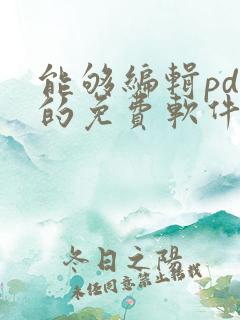 能够编辑pd
的免費軟件
冬日之陽
未经同意禁止转载